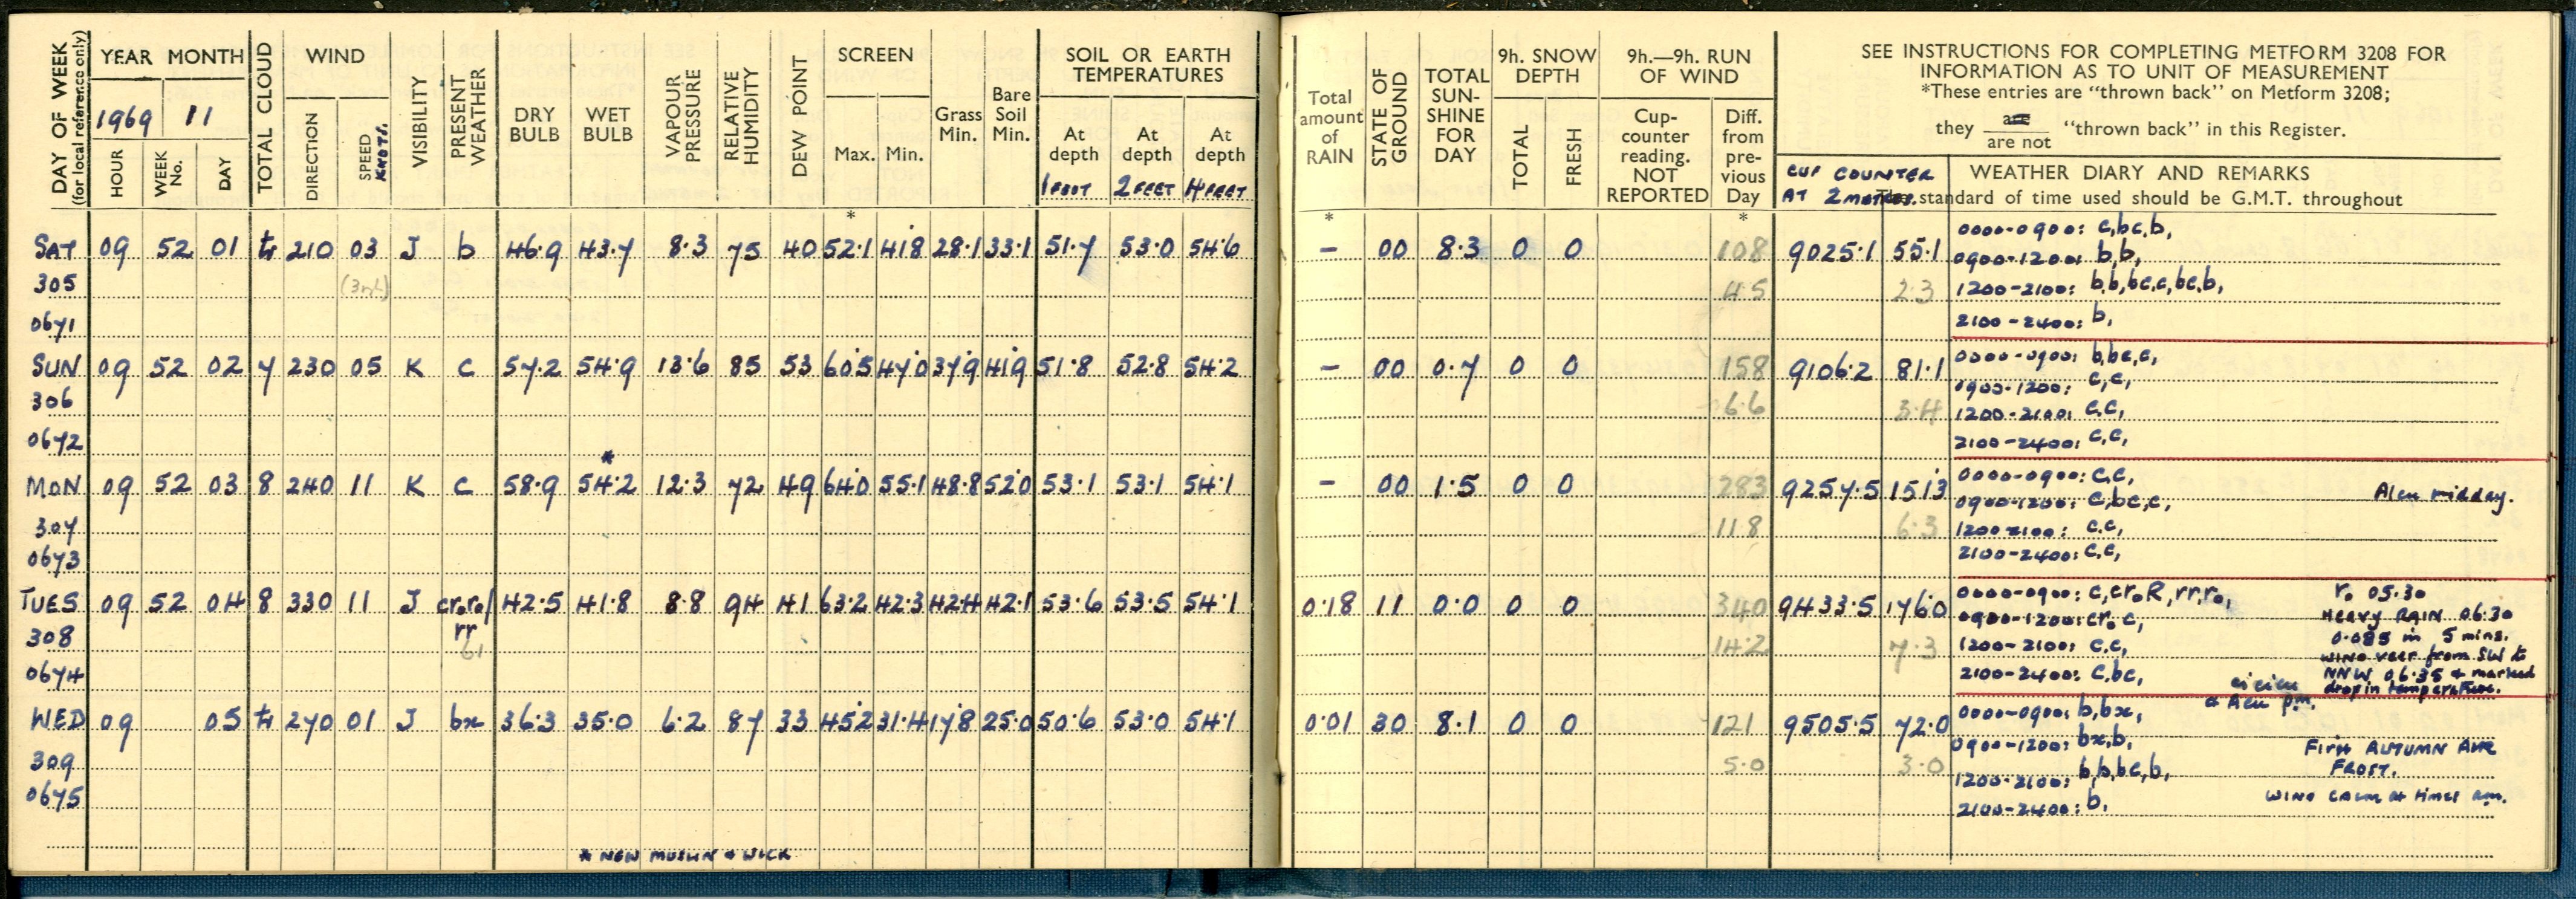 DAY OF WEEK
(for local reference only)
YEAR MONTH
1969 11
HOUR WEEK No. DAY
TOTAL CLOUD
WIND
DIRECTION SPEED KNOTS.
VISIBILITY
PRESENT WEATHER
DRY BULB
WET BULB
VAPOUR PRESSURE
RELATIVE HUMIDITY
DEW POINT
SCREEN
Max. Min.
Grass Min.
Bare Soil Min.
SOIL OR EARTH
TEMPERATURES
At depth At depth At depth
1 FOOT 2 FEET 4 FEET
*
SAT 09 52 01 tr 210 03 J b 46.9 43.7 8.3 75 40 52.1 41.8 28.1 33.1 51.7 53.0 54.6
305 (3 1/2)
0671
SUN 09 52 02 7 230 05 K c 57.2 54.9 13.6 85 53 60.5 47.0 37.9 41.9 51.8 52.8 54.2
306
0672
*
MON 09 52 03 8 240 11 K c 58.9 54.2 12.3 72 49 64.0 55.1 48.8 52.0 53.1 53.1 54.1
307
0673
TUES 09 52 04 8 330 11 J cr₀r₀/ 42.5 41.8 8.8 94 41 63.2 42.3 42.4 42.1 53.6 53.5 54.1
308 rr
61
0674
WED 09 05 tr 270 01 J bx 36.3 35.0 6.2 87 33 45.2 31.4 17.8 25.0 50.6 53.0 54.1
309
0675
* NEW MUSLIN & WICK
Total amount of RAIN
STATE OF GROUND
TOTAL SUN-SHINE FOR DAY
9h. SNOW DEPTH
TOTAL FRESH
9h.—9h. RUN OF WIND
Cup-counter reading. NOT REPORTED
Diff. from pre-vious Day
SEE INSTRUCTIONS FOR COMPLETING METFORM 3208 FOR
INFORMATION AS TO UNIT OF MEASUREMENT
*These entries are "thrown back" on Metform 3208;
they are / are not "thrown back" in this Register.
CUP COUNTER
AT 2 METRES.
WEATHER DIARY AND REMARKS
The standard of time used should be G.M.T. throughout
* *
– 00 8.3 0 0 108 9025.1 55.1 0000-0900: c,bc,b,
0900-1200: b,b,
4.5 2.3 1200-2100: b,b,bc,c,bc,b,
2100-2400: b,
– 00 0.7 0 0 158 9106.2 81.1 0000-0900: b,bc,c,
0900-1200: c,c,
6.6 3.4 1200-2100: c,c,
2100-2400: c,c,
– 00 1.5 0 0 283 9257.5 151.3 0000-0900: c,c,
Acu midday.
0900-1200: c,bc,c,
11.8 6.3 1200-2100: c,c,
2100-2400: c,c,
0.18 11 0.0 0 0 340 9433.5 176.0 0000-0900: c,cr₀R,rr,r₀,
0900-1200: cr₀ c,
14.2 7.3 1200-2100: c,c,
2100-2400: c,bc,
r₀ 05.30
HEAVY RAIN 06.30
0.085 in 5 mins.
WIND veer from SW to
NNW 06.35 & marked
drop in temperature.
0.01 30 8.1 0 0 121 9505.5 72.0 0000-0900: b,bx,
& Acu p.m.
0900-1200: bx,b,
5.0 3.0 1200-2100: b,b,bc,b,
2100-2400: b,
FIRST AUTUMN AIR
FROST.
WIND CALM at times a.m.